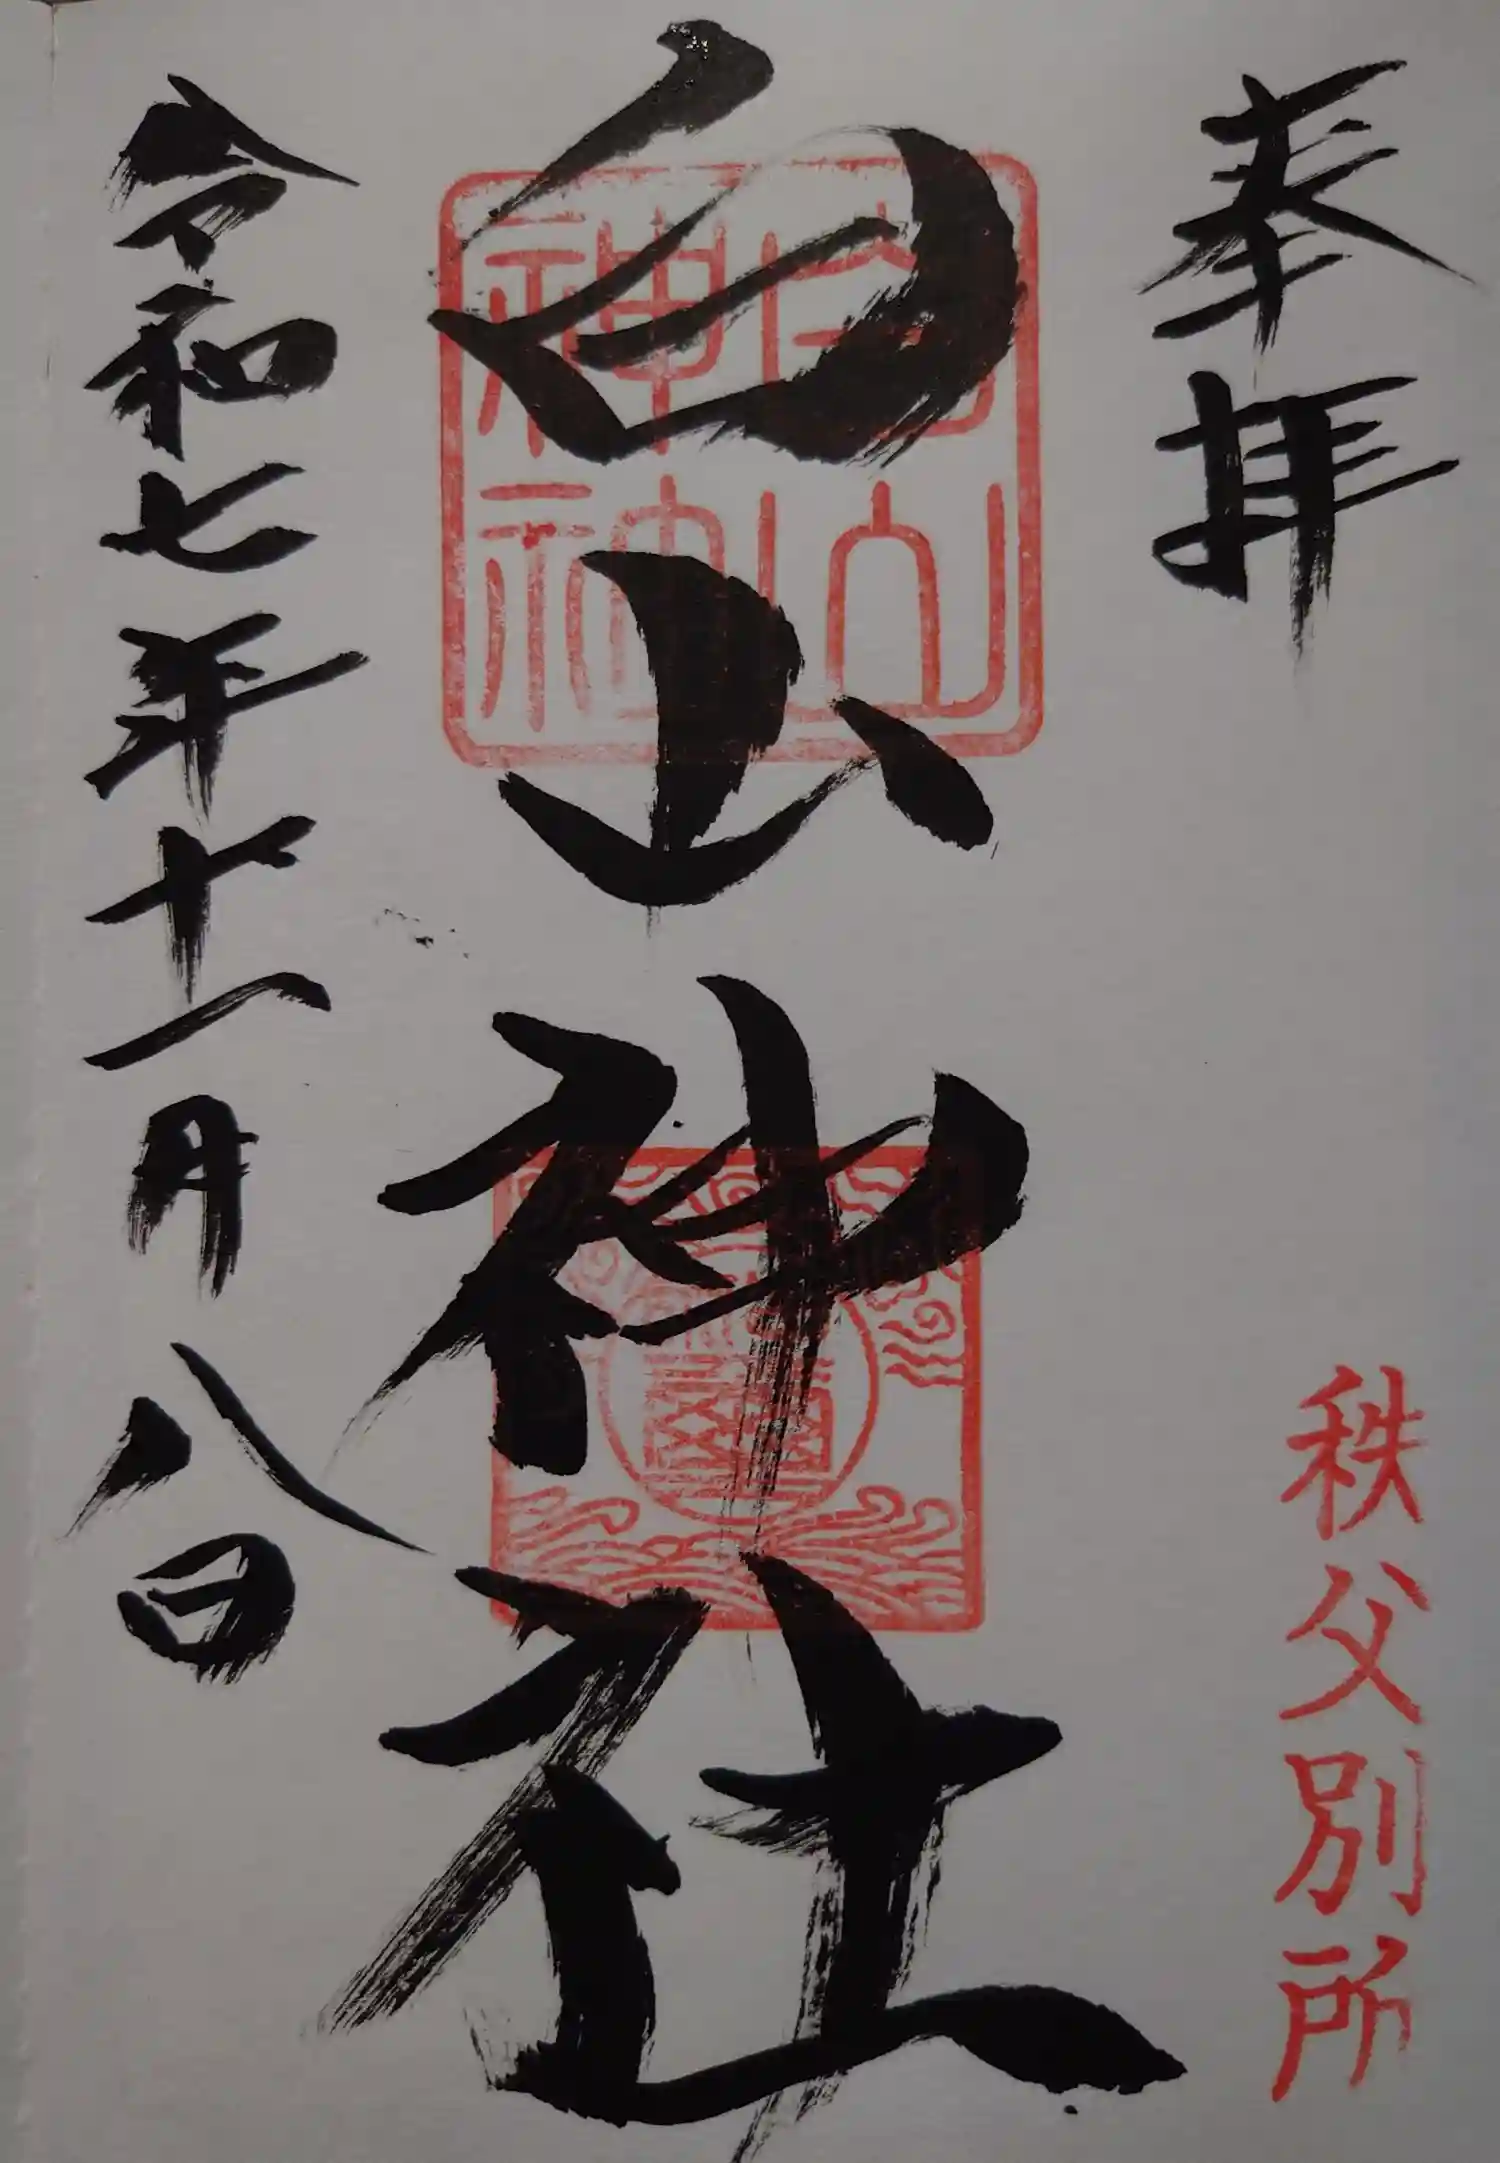 奉拝
秩父別所
白山神社
白山神社
令和七年十一月八日